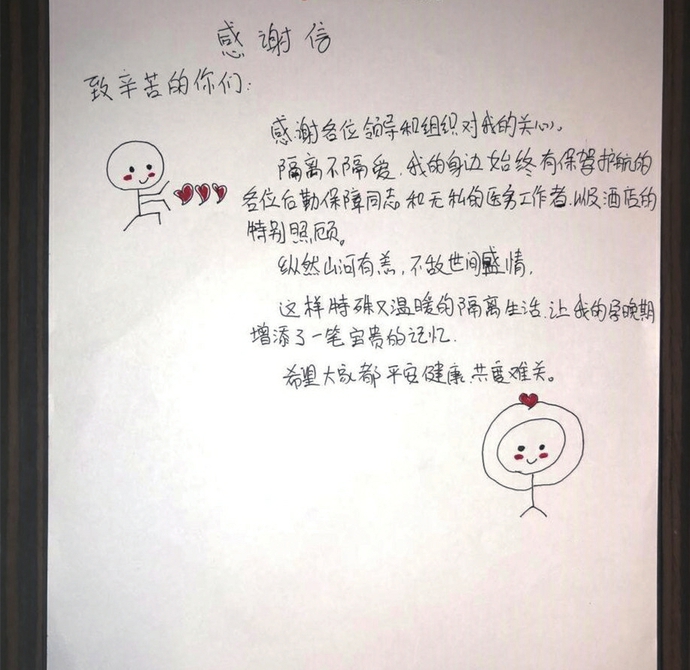 感谢信
致辛苦的你们:
感谢各位领导和组织对我的关心。
隔离不隔爱,我的身边始终有保驾护航的
各位后勤保障同志和无私的医务工作者,以及酒店的
特别照顾。
纵然山河有恙,不敌世间盛情,
这样特殊又温暖的隔离生活,让我的孕晚期
增添了一笔宝贵的记忆.
希望大家都平安健康,共度难关。